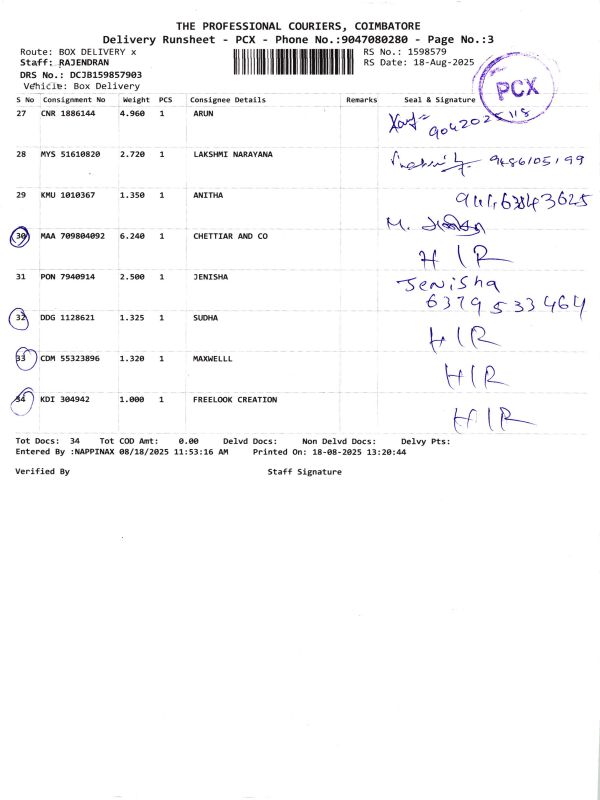 THE PROFESSIONAL COURIERS, COIMBATORE
Delivery Runsheet - PCX - Phone No.:9047080280 - Page No.:3
Route: BOX DELIVERY x RS No.: 1598579
Staff: RAJENDRAN RS Date: 18-Aug-2025
DRS No.: DCJB159857903
Vehicle: Box Delivery
PCX
S No Consignment No Weight PCS Consignee Details Remarks Seal & Signature
27 CNR 1886144 4.960 1 ARUN 9042025118
28 MYS 51610820 2.720 1 LAKSHMI NARAYANA 9486105199
29 KMU 1010367 1.350 1 ANITHA
30 MAA 709804092 6.240 1 CHETTIAR AND CO HIR
31 PON 7940914 2.500 1 JENISHA Jenisha
6379533464
32 DDG 1128621 1.325 1 SUDHA HIR
33 CDM 55323896 1.320 1 MAXWELLL HIR
34 KDI 304942 1.000 1 FREELOOK CREATION HIR
Tot Docs: 34 Tot COD Amt: 0.00 Delvd Docs: Non Delvd Docs: Delvy Pts:
Entered By :NAPPINAX 08/18/2025 11:53:16 AM Printed On: 18-08-2025 13:20:44
Verified By Staff Signature